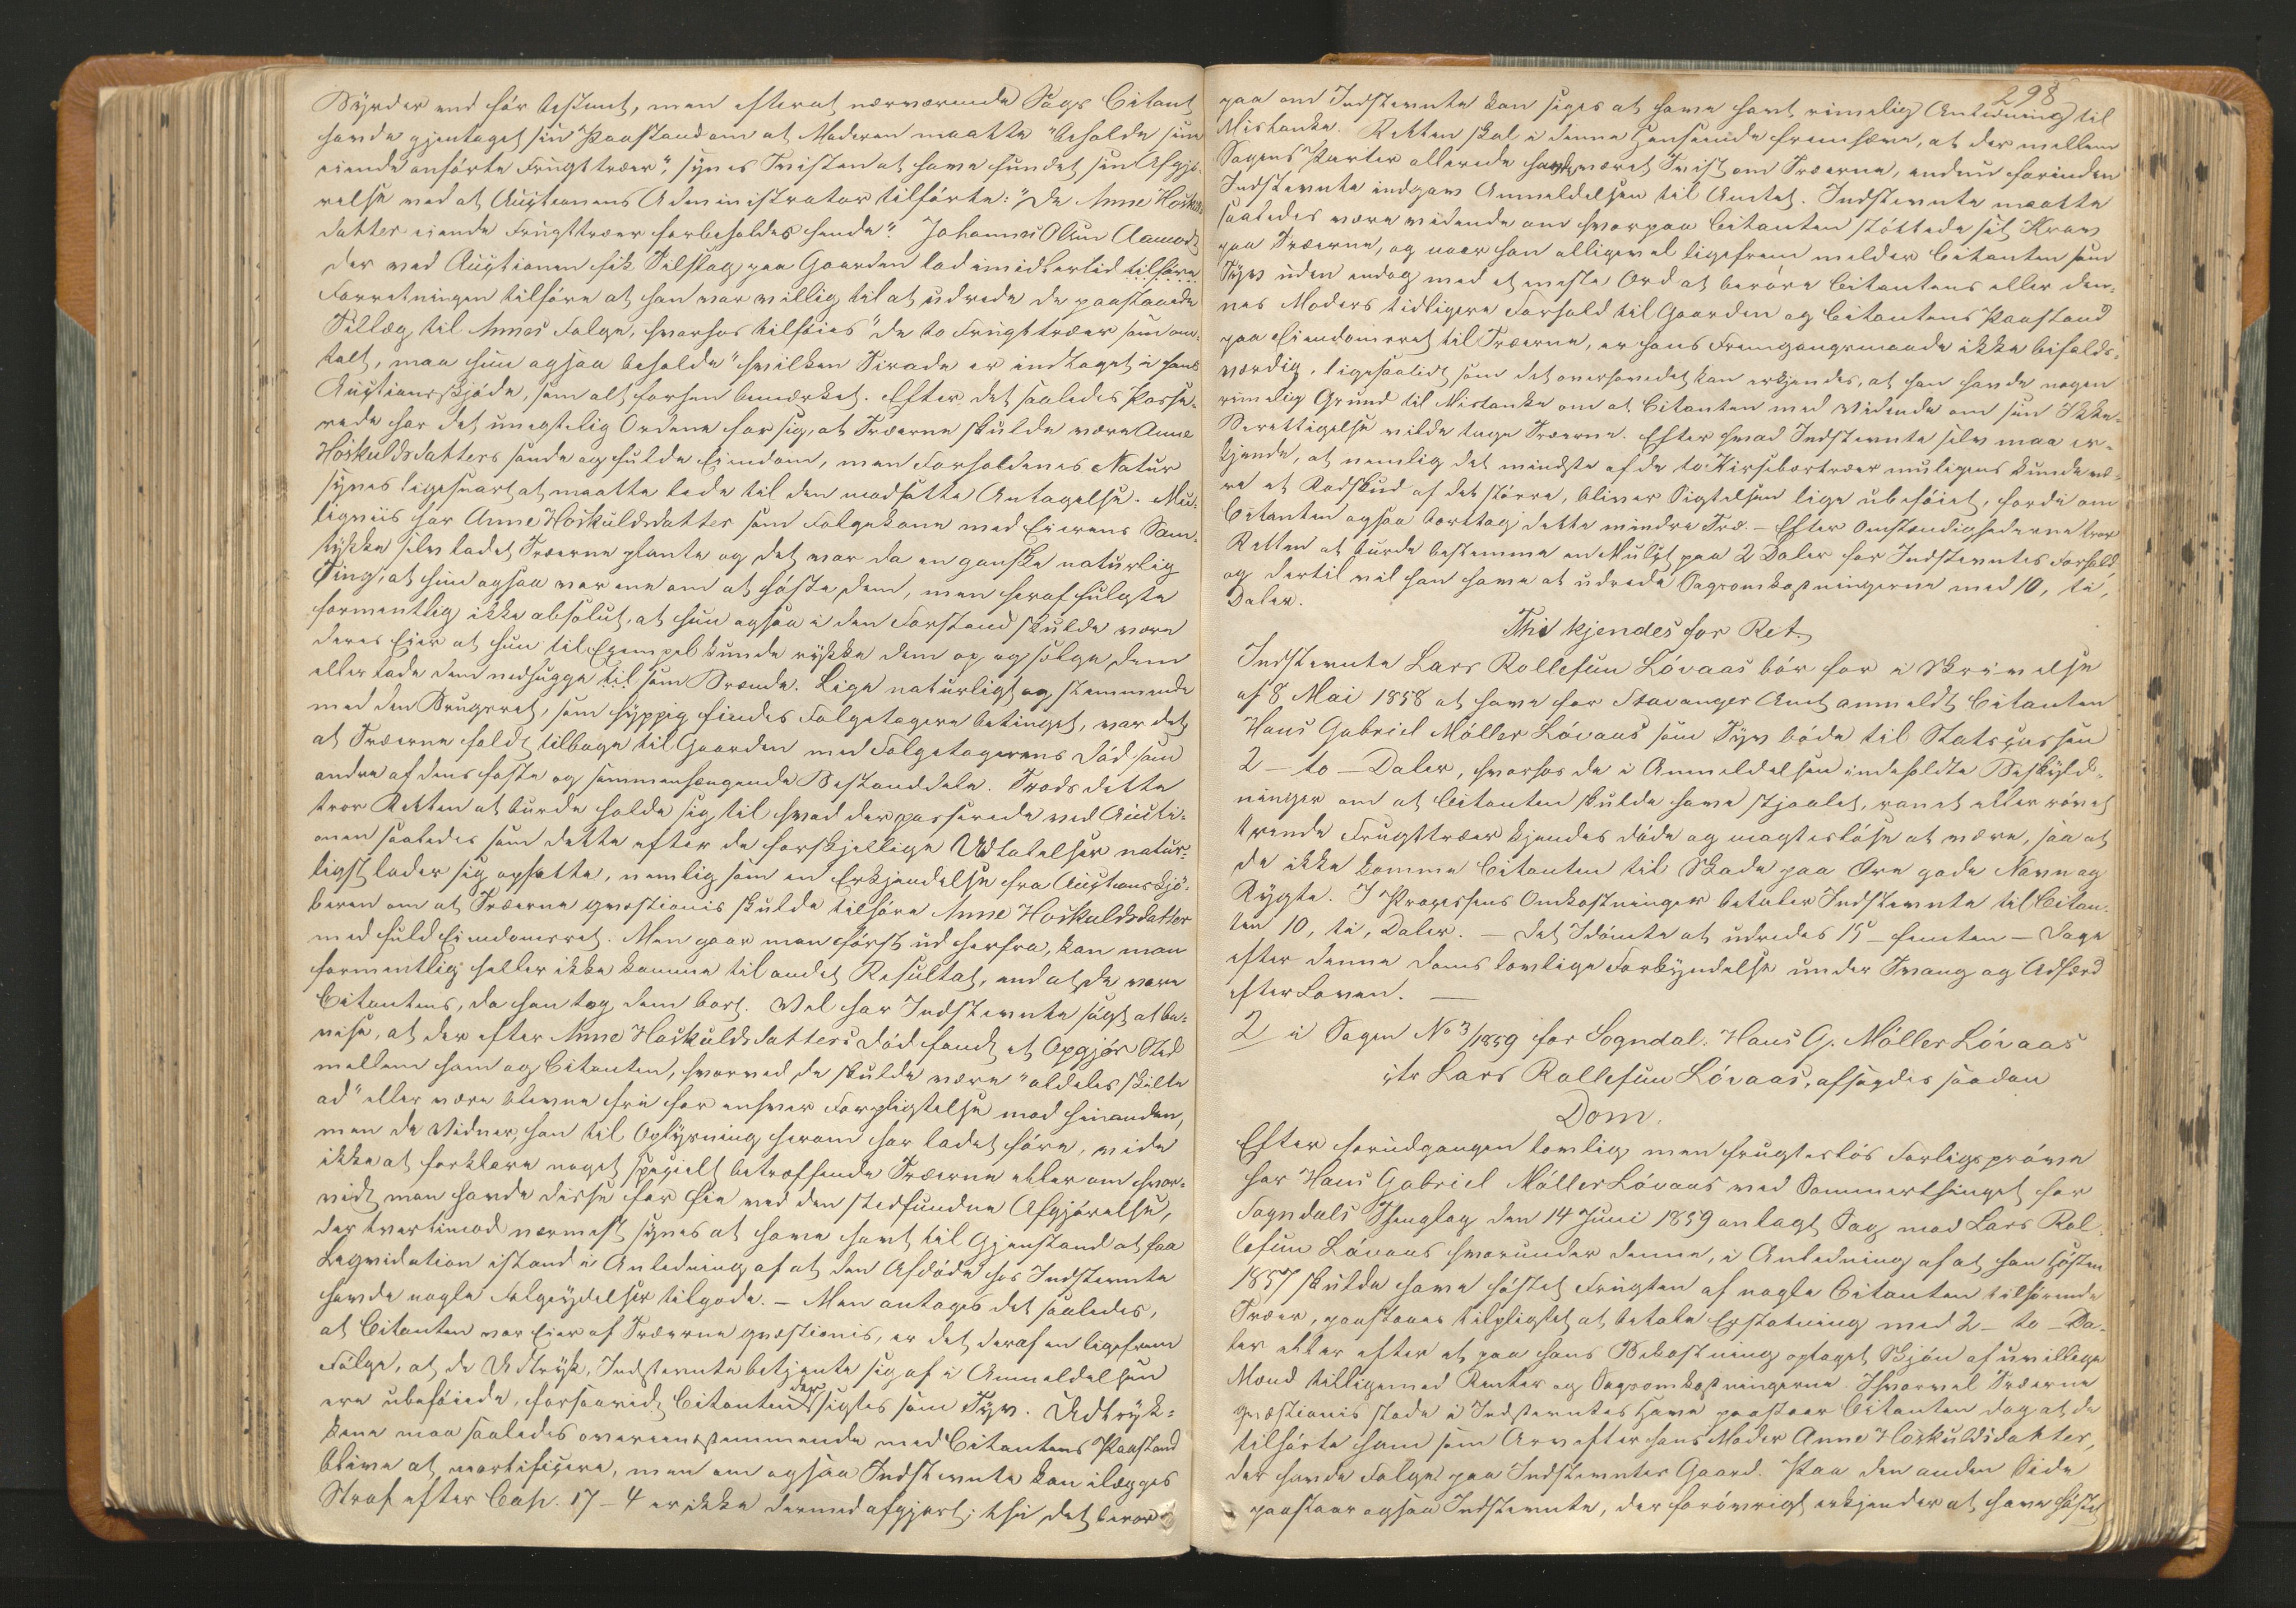 Byrder end før bestemt, men efterat nærværende Sags Citant
havde gjentaget sin Paastand om at Moderen maatte "beholde sine
eiende anførte Frugttræer", synes Tvisten at have fundet sin Afgjø-
relse ved at Auctionens Administrator tilførte: "De Anne Høskulds
datter eiende Frugttræer forbeholdes hende". Johannes Olsen Aamodt
der ved Auctionen fik Tilslag paa Gaarden lod imidlertid tilføre
Forretningen tilføre at han var villig til at udrede de paastaaede
Tillæg til Annes Folge, hvorhos tilføies "de to Frugttræer som om-
talt, maa hun ogsaa beholde" hvilken Tirade er indtaget i hans
Auctionsskjøde, som alt forhen bemærket. Efter det saaledes Passe-
rede har det unegtelig Ordene for sig, at Træerne skulde være Anne
Høskuldsdatters sande og fulde Eiendom, men Forholdenes Natur
synes ligesnart at maatte lede til den modsatte Antagelse. Mu-
ligviis har Anne Høskuldsdatter som Folgekone med Eierens Sam-
tykke selv ladet Træerne plante og det var da en ganske naturlig
Ting, at hun ogsaa var ene om at høste dem, men heraf fulgte
formentlig ikke absolut, at hun ogsaa i den Forstand skulde være
deres Eier at hun til Exempel kunde rykke dem op og sælge dem
eller lade dem nedhugge til som Brænde. Lige naturligt og stemmende
med den Brugsret, som hyppig findes Folgetagere betinget, var det
at Træerne faldt tilbage til Gaarden med Folgetagerens Død som
andre af dens faste og sammenhængende Bestanddele. Trods dette
tror Retten at burde holde sig til hvad der passerede ved Aucti-
onen saaledes som dette efter de forskjellige Udtalelser natur-
ligst lader sig opfatte, nemlig som en Erkjendelse fra Auctionskjø-
beren om at Træerne qvæstionis skulde tilhøre Anne Høskuldsdatter
med fuld Eiendomsret. Men gaar man først ud herfra, kan man
formentlig heller ikke komme til andet Resultat, end at de vare
Citantens, da han tog dem bort. Vel har Indstevnte søgt at be-
vise, at der efter Anne Høskuldsdatters Død fandt et Opgjør Sted
mellem ham og Citanten, hvorved de skulde være "aldeles skilte
ad" eller være blevne fri for enhver Forpligtelse mod hinanden,
men de Vidner, han til Oplysning herom har ladet føre, vide
ikke at forklare noget specielt betræffende Træerne eller om hvor-
vidt man havde disse for Øie ved den stedfundne Afgjørelse,
der tvertimod nærmest synes at have havt til Gjenstand at faa
Liqvidation istand i Anledning af at den Afdøde hos Indstevnte
havde nogle Folgeydelser tilgode. – Men antages det saaledes,
at Citanten var Eier af Træerne qvæstionis, er det deraf en ligefrem
Følge, at de Udtryk, Indstevnte betjente sig af i Anmeldelsen
ere ubeføiede, forsaavidt Citanten der sigtes som Tyv. Udtryk-
kene maa saaledes overeensstemmende med Citantens Paastand
blive at mortificere, men om ogsaa Indstevnte kan ilægges
Straf efter Cap. 17 – 4 er ikke dermed afgjort; thi det beror
298
paa om Indstevnte kan siges at have havt rimelig Anledning til
Mistanke. Retten skal i denne Henseende fremhæve, at der mellem
Sagens Parter allerede havde været Tvist om Træerne, endnu forinden
Indstevnte indgav Anmeldelsen til Amtet. Indstevnte maatte
saaledes være vidende om hvorpaa Citanten støttede sit Krav
paa Træerne, og naar han alligevel ligefrem melder Citanten som
Tyv uden endog med et eneste Ord at berøre Citantens eller den-
nes Moders tidligere Forhold til Gaarden og Citantens Paastand
paa Eiendomsret til Træerne, er hans Fremgangsmaade ikke bifalds-
værdig, ligesaalidt som det overhovedet kan erkjendes, at han havde nogen
rimelig Grund til Mistanke om at Citanten med Vidende om sin Ikke-
Berettigelse vilde tage Træerne. Efter hvad Indstevnte selv maa er-
kjende, at nemlig det mindste af de to Kirsebærtræer muligens kunde væ-
re et Rodskud af det større, bliver Sigtelsen lige ubeføiet, fordi om
Citanten ogsaa borttog dette mindre Træ. – Efter Omstændighederne tror
Retten at burde bestemme en Mulkt paa 2 Daler for Indstevntes Forhold,
og dertil vil han have at udrede Sagsomkostningerne med 10, ti,
Daler.
Thi kjendes for Ret
Indstevnte Lars Rollefsen Løvaas bør for i Skrivelse
af 8 Mai 1858 at have for Stavanger Amt anmeldt Citanten
Hans Gabriel Møller Løvaas som Tyv bøde til Statscassen
2 – to – Daler, hvorhos de i Anmeldelsen indeholdte Beskyld-
ninger om at Citanten skulde have stjaalet, ranet eller røvet
tvende Frugttræer kjendes døde og magtesløse at være, saa at
de ikke komme Citanten til Skade paa Ære gode Navn og
Rygte. I Processens Omkostninger betaler Indstevnte til Citan-
ten 10, ti, Daler. – Det Idømte at udredes 15 – femten – Dage
efter denne Doms lovlige Forkyndelse under Tvang og Adfærd
efter Loven. —
2 i Sagen No 3/1859 for Sogndal. Hans G. Møller Løvaas
ctr Lars Rollefsen Løvaas, afsagdes saadan
Dom.
Efter forudgangen lovlig men frugtesløs Forligsprøve
har Hans Gabriel Møller Løvaas ved Sommerthinget for
Sogndals Thinglag den 14 Juni 1859 anlagt Sag mod Lars Rol-
lefsen Løvaas hvorunder denne, i Anledning af at han Høsten
1857 skulde have høstet Frugten af nogle Citanten tilhørende
Træer, paastaaes tilpligtet at betale Erstatning med 2 – to – Da-
ler eller efter et paa hans Bekostning optaget Skjøn af uvillige
Mænd tilligemed Renter og Sagsomkostningerne. Ihvorvel Træerne
qvæstionis stode i Indstevntes Have paastaar Citanten dog at de
tilhørte ham som Arv efter hans Moder Anne Høskuldsdatter,
der havde Folge paa Indstevntes Gaard. Paa den anden Side
paastaar ogsaa Indstevnte, der forøvrigt erkjender at have høstet